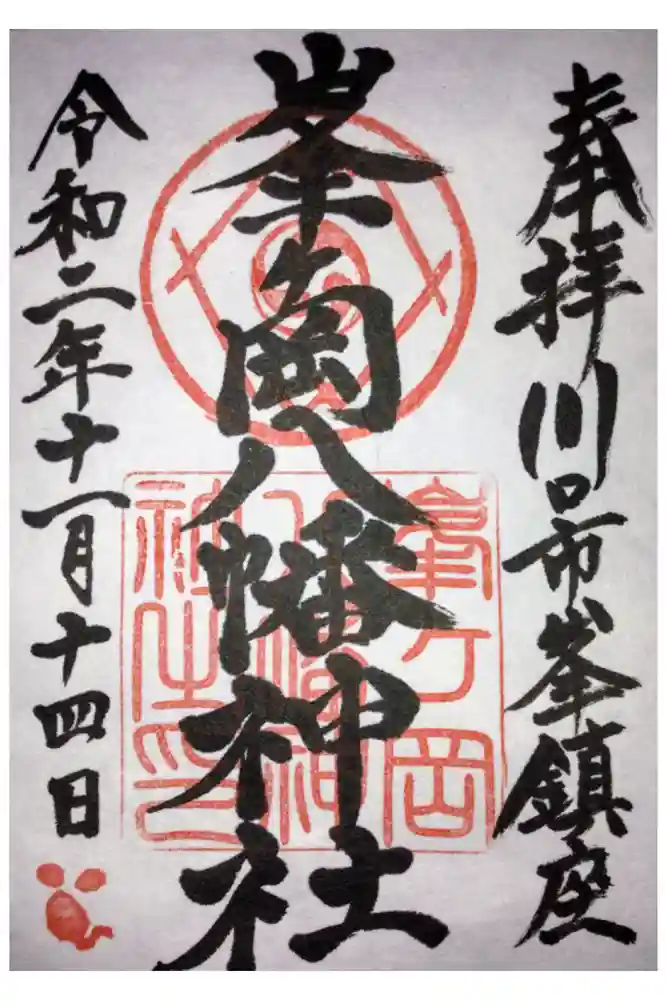 奉拝 川口市峯鎮座
峯ヶ岡八幡神社
峯ヶ岡
八幡神
社之印
令和二年十一月十四日